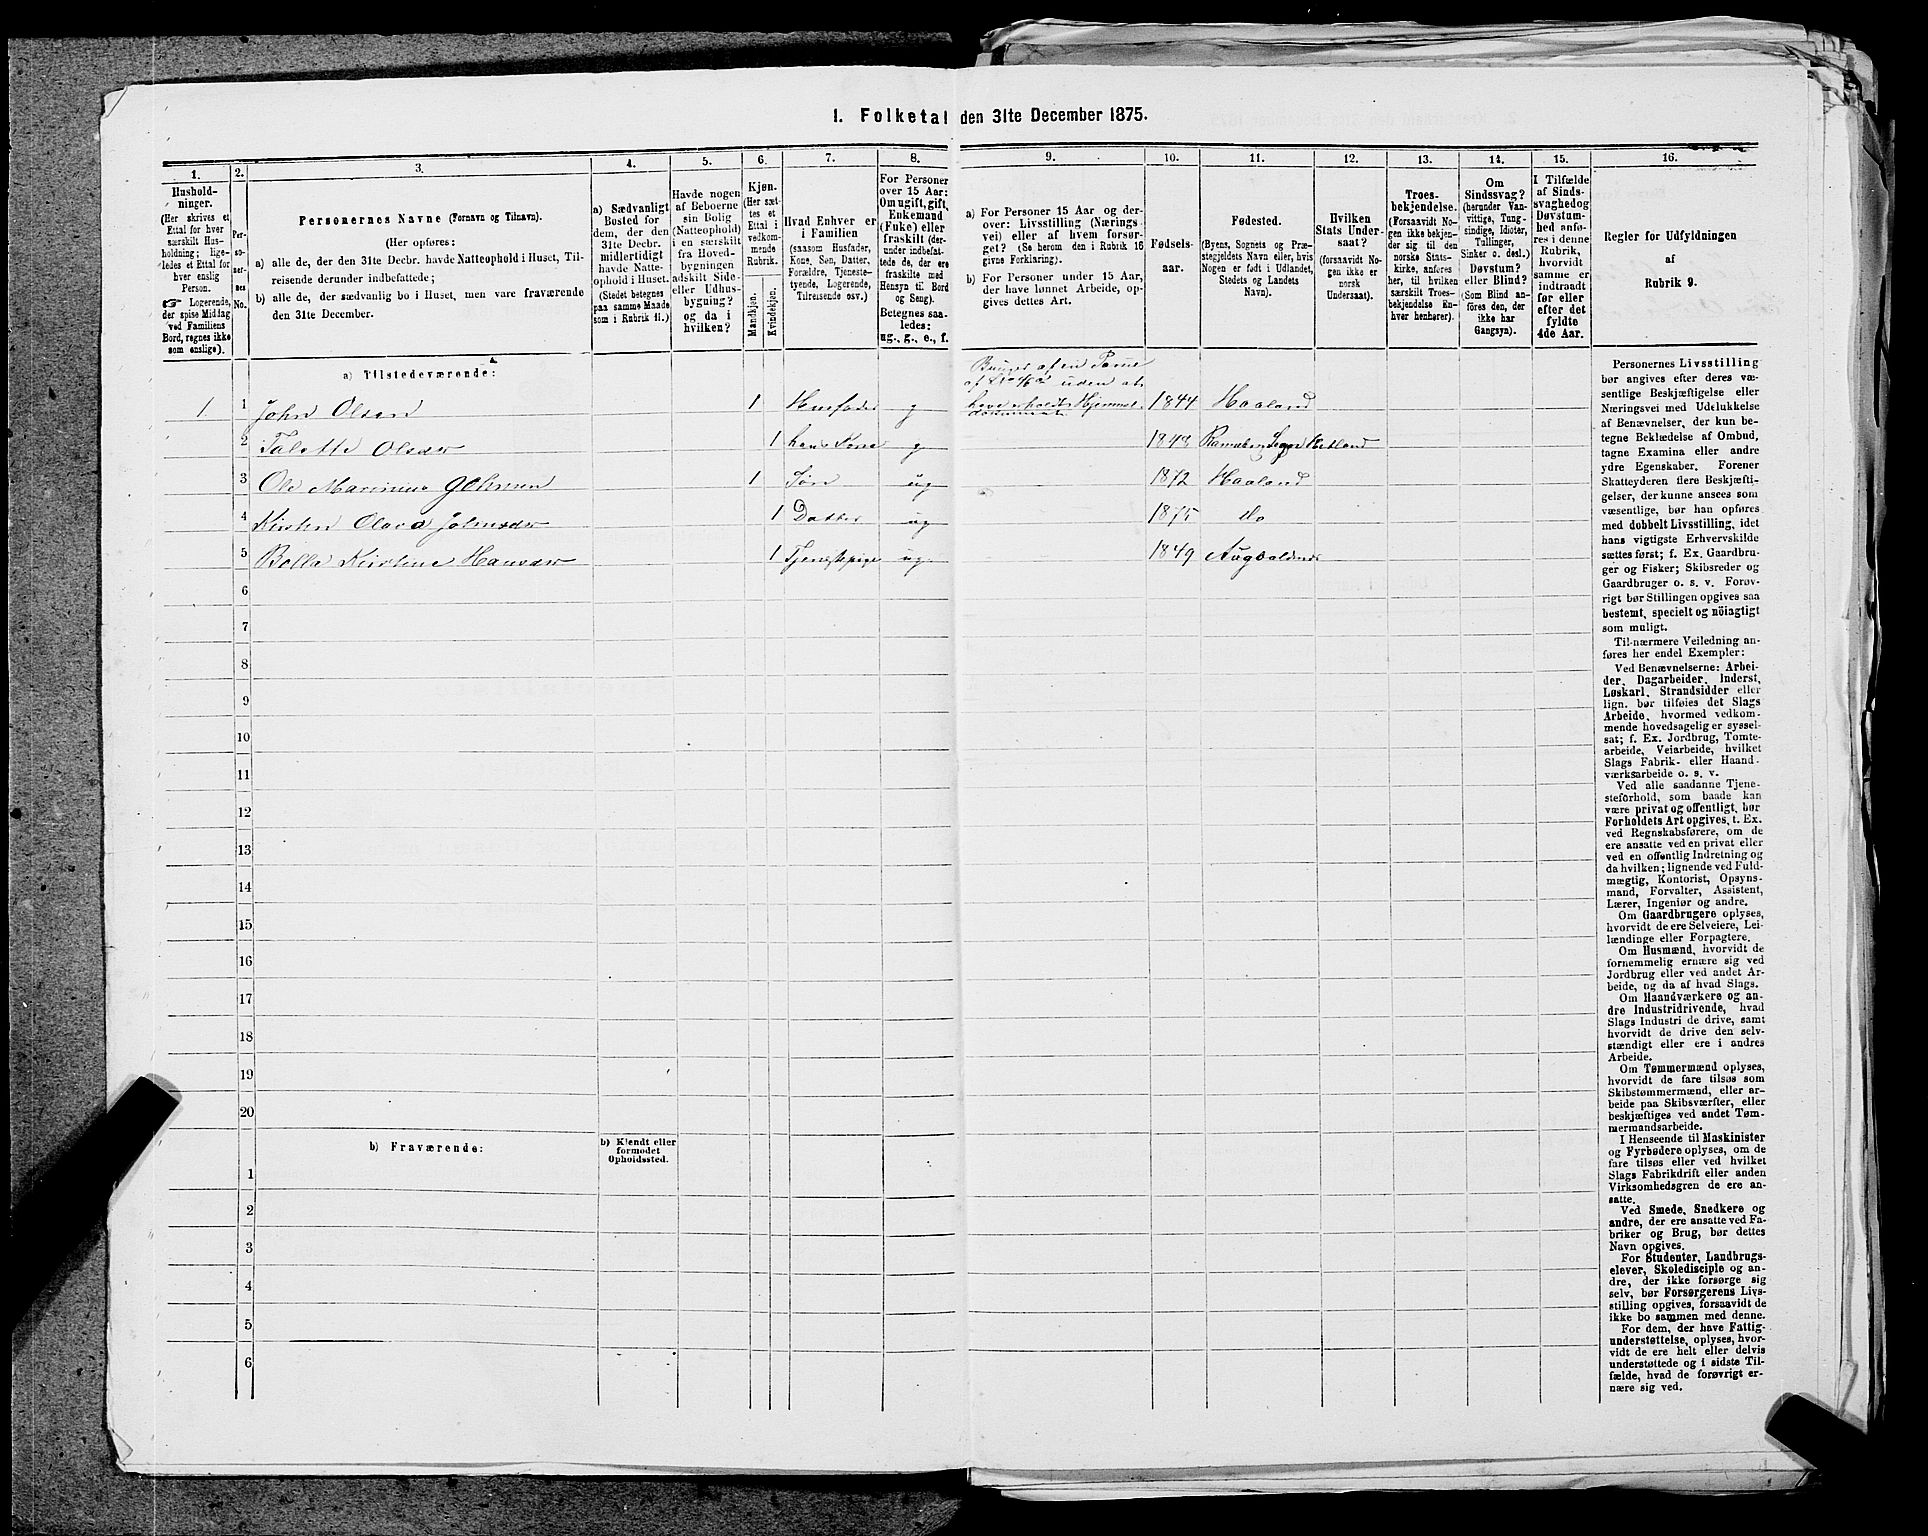 1. Folketal den 31te December 1875.
1.
2.
3.
4.
5.
6.
7.
8.
9.
10.
11.
12.
13.
14.
15.
16.
Hushold-
ninger.
(Her skrives et
Ettal for hver
særskilt Hus-
holdning; lige-
ledes et Ettal for
hver enslig
Person.
☞ Logerende,
der spise Middag
ved Familiens
Bord, regnes ikke
som enslige).
Per-
so-
ner-
nes
No.
Personernes Navne (Fornavn og Tilnavn).
(Her opføres:
a) alle de, der den 31te Decbr. havde Natteophold i Huset, Til-
reisende derunder indbefattede;
b) alle de, der sædvanlig bo i Huset, men vare fraværende
den 31te December.
a) Sædvanligt
Bosted for
dem, der den
31te Decbr.
midlertidigt
havde Natte-
ophold i Huset.
(Stedet betegnes
paa samme Maade
som i Rubrik 11.)
Havde nogen
af Beboerne
sin Bolig
(Natteophold)
i en særskilt
fra Hoved-
bygningen
adskilt Side-
eller Udhus-
bygning?
og da i
hvilken?
Kjøn.
(Her sæt-
tes et
Ettal i
vedkom-
mende
Rubrik.
Mandkjøn.
Kvindekjøn.
Hvad Enhver er
i Familien
(saasom Husfader,
Kone, Søn, Datter,
Forældre, Tjeneste-
tyende, Logerende,
Tilreisende osv.)
For Personer
over 15 Aar:
Om ugift, gift,
Enkemand
(Enke) eller
fraskilt (der-
under indbefat-
tede de, der ere
fraskilte med
Hensyn til Bord
og Seng).
Betegnes saa-
ledes:
ug., g., e., f.
a) For Personer 15 Aar og der-
over: Livsstilling (Nærings-
vei) eller af hvem forsør-
get? (Se herom den i Rubrik 16
givne Forklaring).
b) For Personer under 15 Aar,
der have lønnet Arbeide, op-
gives dettes Art.
Fødsels-
aar.
Fødested.
(Byens, Sognets og Præ-
stegjeldets Navn eller, hvis
Nogen er født i Udlandet,
Stedets og Landets
Navn).
Hvilken
Stats Under-
saat?
(forsaavidt No-
gen ikke er
norsk
Undersaat).
Troes-
bekjendelse.
(Forsaavidt No-
gen ikke bekjen-
der sig til den
norske Stats-
kirke, anføres
her, til hvilken
særskilt Troes-
bekjendelse En-
hver henhører).
Om
Sindssvag?
(herunder Van-
vittige, Tung-
sindige, Idioter,
Tullinger,
Sinker o. desl.)
Døvstum?
eller Blind?
(Som Blind an-
føres den, der
ikke har
Gangsyn).
I Tilfælde
af Sinds-
svaghed og
Døvstum-
hed anfø-
res i denne
Rubrik,
hvorvidt
samme er
indtraadt
før eller
efter det
fyldte
4de Aar.
Regler for Udfyldningen
af
Rubrik 9.
a) Tilstedeværende:
Bruger af en Parcel
uden at
have erholdt Hjemmel.
1 1 John Olsen 1 Husfader g 1844 Haaland
2 Talette Olsen 1 hans Kone g 1843
3 Ole Marinius Johnsen 1 Søn ug 1872 Haaland
4 Kirsten Olava Johnsen 1 Datter ug 1875 do
5 Bolla Kirstine Hansen 1 Tjenestepige ug. 1849 Augvaldnes
6
7
8
9
10
11
12
13
14
15
16
17
18
19
20
b) Fraværende:
b) Kjendt eller
formodet
Opholdssted.
1
2
3
4
5
6
Personernes Livsstilling
bør angives efter deres væ-
sentlige Beskjæftigelse eller
Næringsvei med Udelukkelse
af Benævnelser, der kun be-
tegne Beklædelse af Ombud,
tagne Examina eller andre
ydre Egenskaber. Forener
Skatteyderen flere Beskjæfti-
gelser, der kunne ansees som
væsentlige, bør han opføres
med dobbelt Livsstilling, idet
hans vigtigste Erhvervskilde
sættes først; f. Ex. Gaardbru-
ger og Fisker; Skibsreder og
Gaardbruger o. s. v. Forøv-
rigt bør Stillingen opgives saa
bestemt, specielt og nöiagtigt
som muligt.
Til nærmere Veiledning an-
føres her endel Exempler:
Ved Benævnelserne: Arbei-
der, Dagarbeider, Inderst,
Løskarl, Strandsidder eller
lign. bør tilføies det Slags
Arbeide, hvormed vedkom-
mende hovedsagelig er syssel-
sat; f. Ex. Jordbrug, Tomte-
arbeide, Veiarbeide, hvilket
Slags Fabrik- eller Haand-
værksarbeide o. s. v.
Ved alle saadanne Tjene-
steforhold, som baade kan
være privat og offentligt, bør
Forholdets Art opgives, t. Ex.
ved Regnskabsførere, om de
ere ansatte ved en privat eller
ved en offentlig Indretning og
da hvilken; lignende ved Fuld-
mægtig, Kontorist, Opsyns-
mand, Forvalter, Assistent,
Lærer, Ingeniør og andre.
Om Gaardbrugere oplyses,
hvorvidt de ere Selveiere, Lei-
lændinge eller Forpagtere.
Om Husmænd, hvorvidt de
fornemmelig ernære sig ved
Jordbrug eller ved andet Ar-
beide, og da af hvad Slags.
Om Haandværkere og an-
dre Industridrivende, hvad
Slags Industri de drive, samt
hvorvidt de drive den selv-
stændigt eller ere i andres
Arbeide.
Om Tømmermænd oplyses,
hvorvidt de fare tilsøs som
Skibstømmermænd, eller ar-
beide paa Skibsværfter, eller
beskjæftiges ved andet Tøm-
mermandsarbeide.
I Henseende til Maskinister
og Fyrbødere oplyses, om de
fare tilsøs eller ved hvilket
Slags Fabrikdrift eller anden
Virksomhedsgren de ere an-
satte.
Ved Smede, Snedkere og
andre, der ere ansatte ved Fa-
briker og Brug, bør dettes
Navn opgives.
For Studenter, Landbrugs-
elever, Skoledisciple og an-
dre, der ikke forsørge sig
selv, bør Forsørgerens Livs-
stilling opgives, forsaavidt de
ikke bo sammen med denne.
For dem, der have Fattig-
understøttelse, oplyses, hvor-
vidt de ere helt eller delvis
understøttede og i sidste Til-
fælde, hvad de forøvrigt er-
nære sig ved.